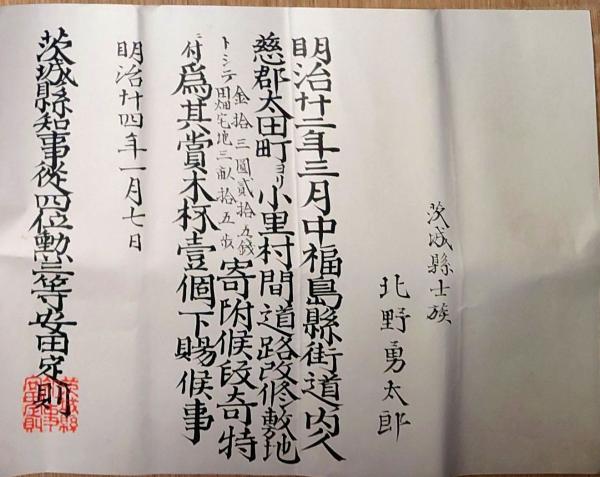 茨城縣士族
北野勇太郎
明治廿二年三月中福島縣街道內久
慈郡太田町ヨリ小里村間道路改修敷地
トシテ金拾三圓貳拾五錢田畑宅地三畝拾五步寄附候段奇特
ニ付爲其賞木杯壹個下賜候事
明治廿四年一月七日
茨城縣知事從四位勳三等安田定則